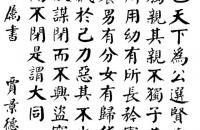 也天下為公選賢
親其親不獨子其
所用幼有所長矜
男有分女有歸貨
於己力惡其不
謀閉而不興盜
而不閉是謂大同
屬書 賈景德